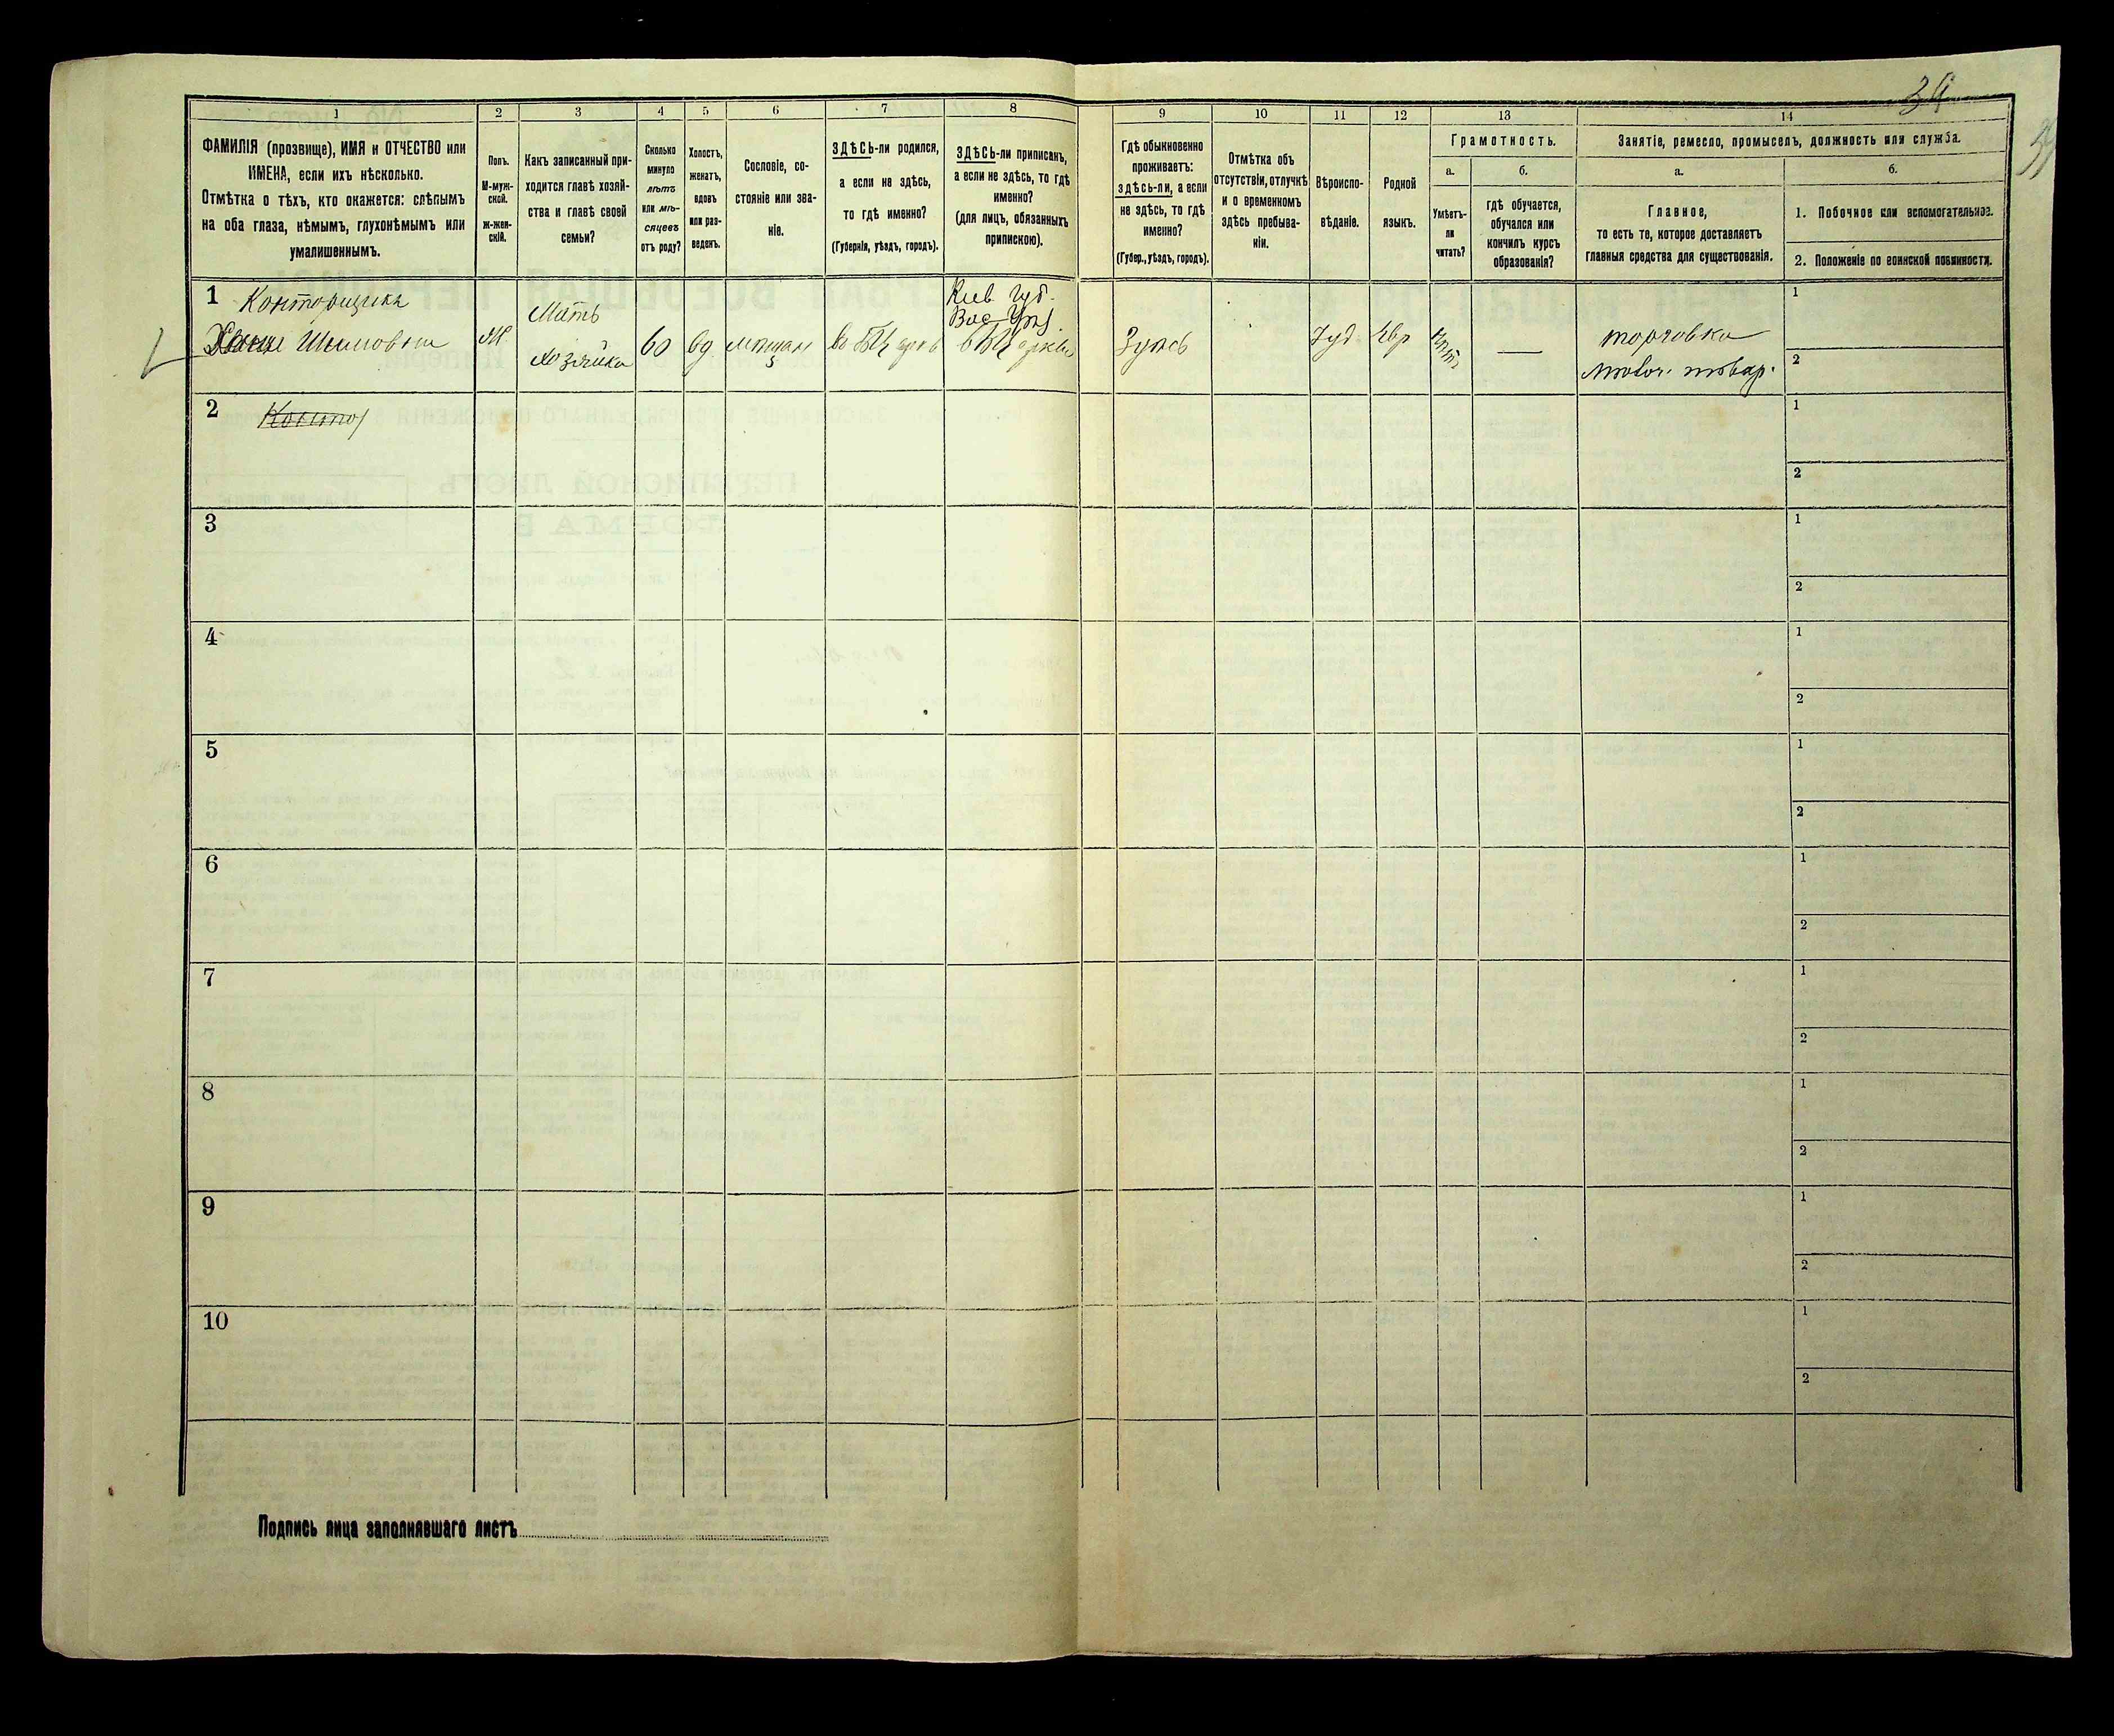 34
39
1
2
3
4
5
6
7
8
9
10
11
12
13
14
ФАМИЛІЯ (прозвище), ИМЯ и ОТЧЕСТВО или
ИМЕНА, если ихъ нѣсколько.
Отмѣтка о тѣхъ, кто окажется: слѣпымъ
на оба глаза, нѣмымъ, глухонѣмымъ или
умалишеннымъ.
Полъ.
М-муж-
ской.
ж-жен-
скій.
Какъ записанный при-
ходится главѣ хозяй-
ства и главѣ своей
семьи?
Сколько
минуло
лѣтъ
или мѣ-
сяцевъ
отъ роду?
Холостъ,
женатъ,
вдовъ
или раз-
веденъ.
Сословіе, со-
стояніе или зва-
ніе.
ЗДѢСЬ-ли родился,
а если не здѣсь,
то гдѣ именно?
(Губернія, уѣздъ, городъ).
ЗДѢСЬ-ли приписанъ,
а если не здѣсь, то гдѣ
именно?
(для лицъ, обязанныхъ
припискою).
Гдѣ обыкновенно
проживаетъ:
здѣсь-ли, а если
не здѣсь, то гдѣ
именно?
(Губер., уѣздъ, городъ).
Отмѣтка объ
отсутствіи, отлучкѣ
и о временномъ
здѣсь пребыва-
ніи.
Вѣроиспо-
вѣданіе.
Родной
языкъ.
Грамотность.
а.
Умѣетъ-
ли
читать?
б.
гдѣ обучается,
обучался или
кончилъ курсъ
образованія?
Занятіе, ремесло, промыселъ, должность или служба.
а.
Главное,
то есть то, которое доставляетъ
главныя средства для существованія.
б.
1. Побочное или вспомогательное.
2. Положеніе по воинской повинности.
1
Конторщика
Шимовна
Мать
хозяйка
60
вд
мѣщан
Кіев губ.
Вас
Здѣсь
Іуд
Евр
—
торговка
товар.
1
2
2
1
2
3
1
2
4
1
2
5
1
2
6
1
2
7
1
2
8
1
2
9
1
2
10
1
2
Подпись лица заполнявшаго листъ